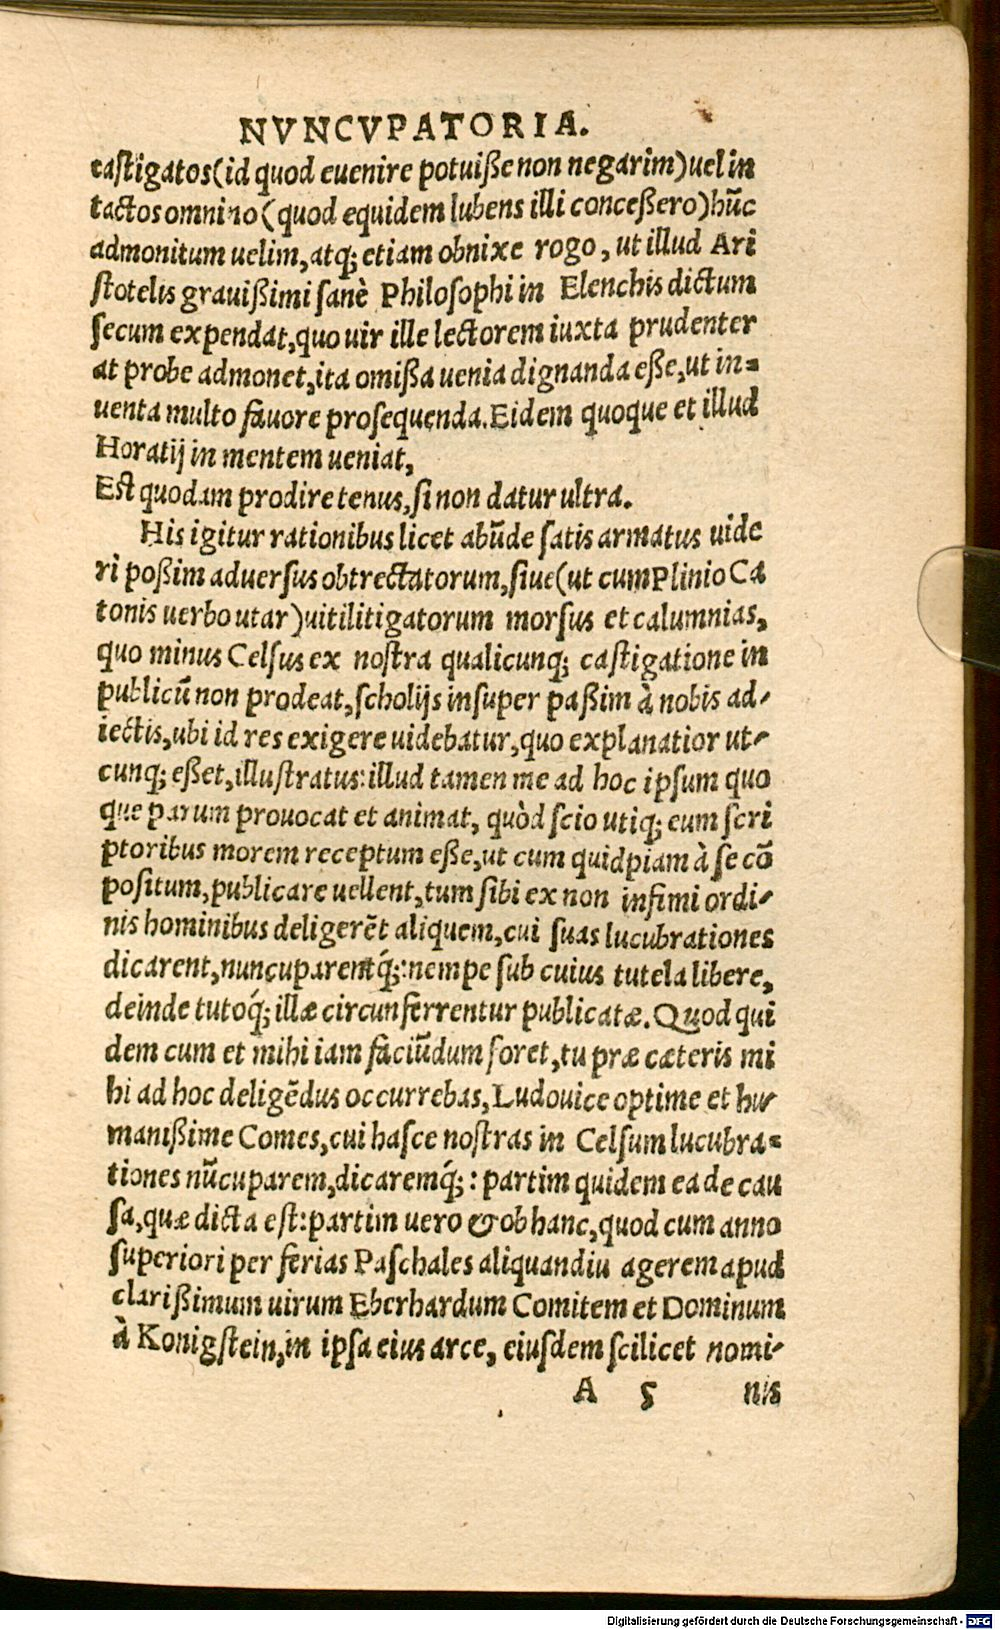 NVNCVPATORIA.
castigatos(id quod euenire potuiße non negarim)uel in
tactos omnino(quod equidem lubens illi conceßero)hūc
admonitum uelim, atq; etiam obnixe rogo, ut illud Ari
ſtotelis grauißimi ſanè Philoſophi in Elenchis dictum
ſecum expendat, quo uir ille lectorem iuxta prudenter
at probe admonet, ita omißa uenia dignanda eße, ut in=
uenta multo fauore proſequenda. Eidem quoque et illud
Horatij in mentem ueniat,
Eſt quodam prodire tenus, ſi non datur ultra.
His igitur rationibus licet abūde ſatis armatus uide
ri poßim aduerſus obtrectatorum, ſiue(ut cum Plinio Ca
tonis uerbo utar)uitilitigatorum morſus et calumnias,
quo minus Celſus ex noſtra qualicunq; caſtigatione in
publicū non prodeat, ſcholijs inſuper paßim à nobis ad-
iectis, ubi id res exigere uidebatur, quo explanatior ut-
cunq; eßet, illuſtratus: illud tamen me ad hoc ipſum quo
que parum prouocat et animat, quòd ſcio utiq; eum ſcri
ptoribus morem receptum eße, ut cum quidpiam à ſe cō
poſitum, publicare uellent, tum ſibi ex non infimi ordi-
nis hominibus deligerēt aliquem, cui ſuas lucubrationes
dicarent, nuncuparentq́;: nempe ſub cuius tutela libere,
deinde tutoq́; illæ circunferrentur publicatæ. Quod qui
dem cum et mihi iam faciūdum foret, tu præ cæteris mi
hi ad hoc deligēdus occurrebas, Ludouice optime et hu-
manißime Comes, cui haſce noſtras in Celſum lucubra=
tiones nūcuparem, dicaremq́;: partim quidem ea de cau
ſa, quæ dicta eſt: partim uero & ob hanc, quod cum anno
ſuperiori per ferias Paſchales aliquandiu agerem apud
clarißimum uirum Eberhardum Comitem et Dominum
à Konigſtein, in ipſa eius arce, eiuſdem ſcilicet nomi-
A 5 nis
Digitalisierung gefördert durch die Deutsche Forschungsgemeinschaft - DFG